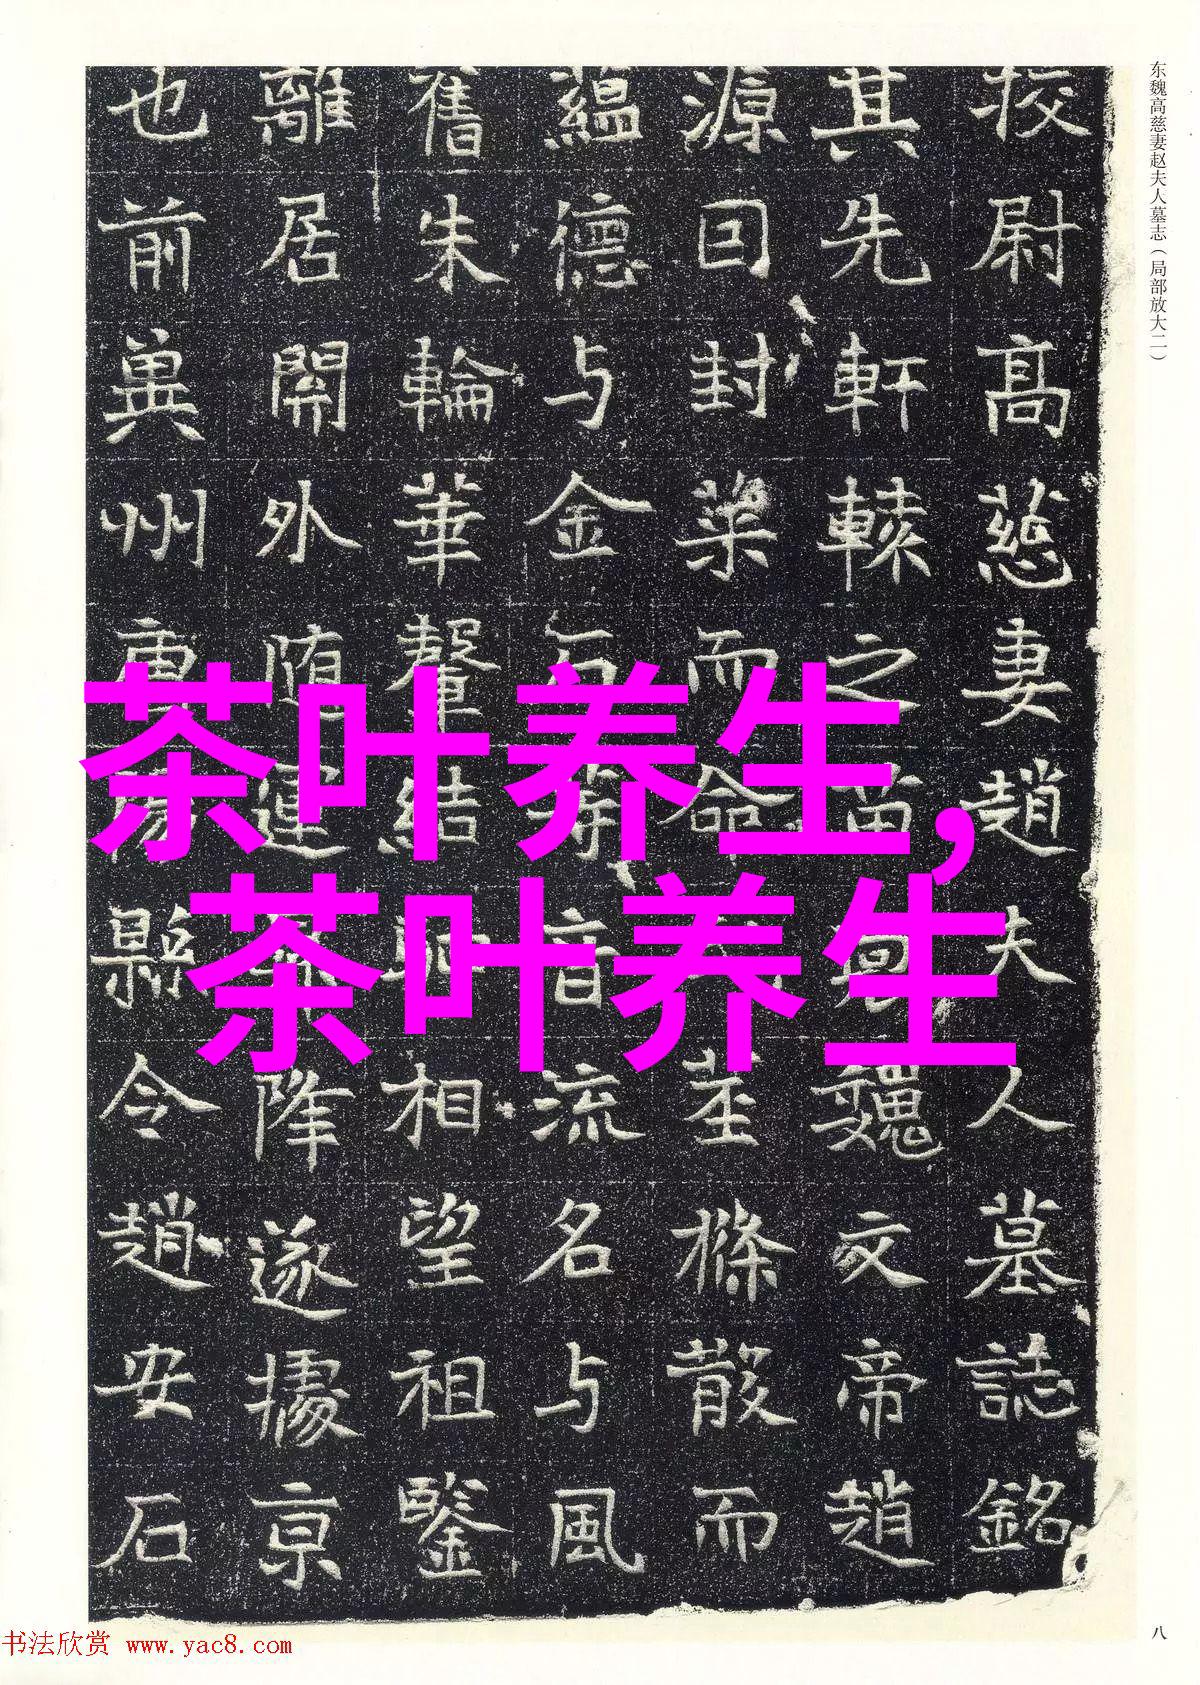 东魏高慈妻赵夫人墓志（局部放大二）
挍尉髙慈妻趙夫人墓誌銘
其先軒轅之苗魏文帝趙
源曰封而命茎條散而
蘊德与金石等音流名与風
舊朱輪華輦結相望祖鑒
離居開外随運降遂據京
也前冀州陽縣令趙安石
茶叶养生,
茶叶养生
八
书法欣赏 www.yac8.com